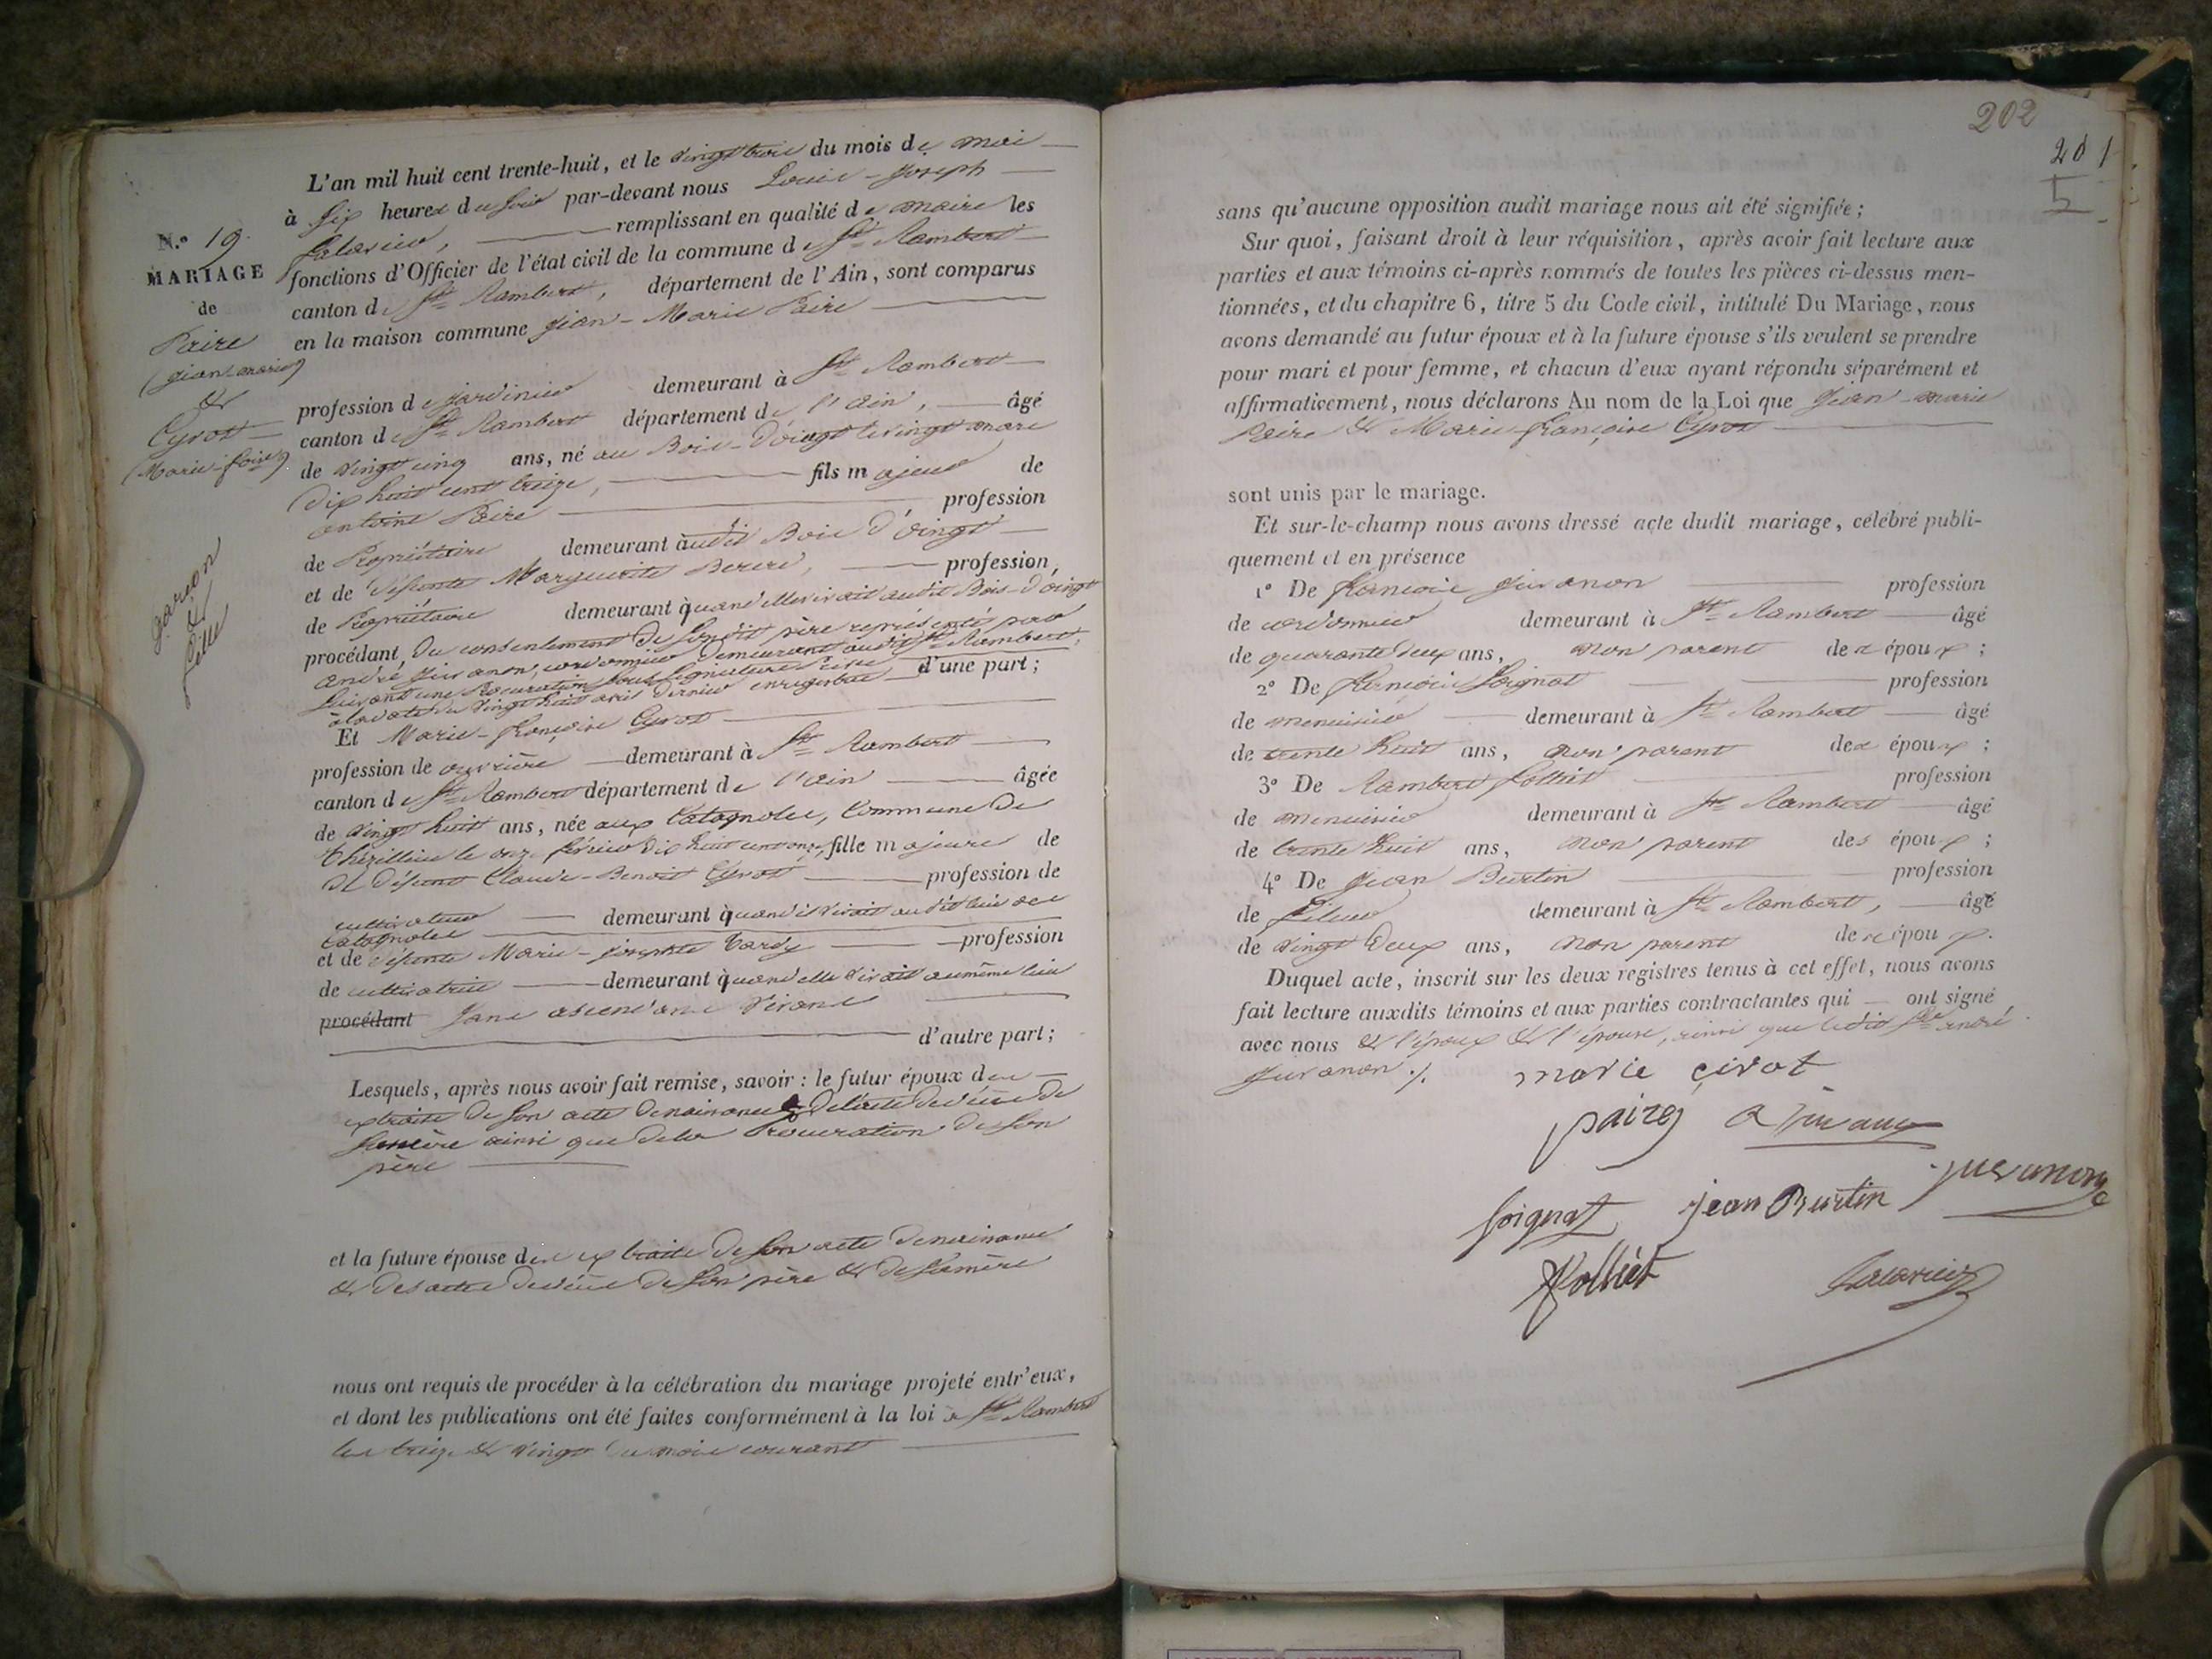 N.° 19.
MARIAGE
de
Paire
(jean-marie)
&
Cyrot
(Marie-f.çoise)
garçon
&
fille
L'an mil huit cent trente-huit, et le vingt trois du mois de mai
à six heures du soir par-devant nous Louis-Joseph
remplissant en qualité de maire les
fonctions d'Officier de l'état civil de la commune de St Rambert
canton de St Rambert, département de l'Ain, sont comparus
en la maison commune Jean-Marie Paire
profession de jardinier demeurant à St Rambert
canton de St Rambert département de l'ain, âgé
de vingt cinq ans, né au Bois-d'oingt le vingt mars
dix huit cent treize, fils majeur de
antoine Paire profession
de Propriétaire demeurant audit Bois d'oingt
et de défunte Marguerite profession,
de Propriétaire demeurant quand elle vivait audit Bois-d'oingt
procédant, du consentement de sondit père représenté par
andré Juvanon, cordonnier demeurant audit St Rambert,
suivant une Procuration sous signature privée d'une part;
à la date du vingt huit avril dernier enregistrée
Et Marie-françoise Cyrot
profession de ouvrière demeurant à St Rambert
canton de St Rambert département de l'ain âgée
de vingt huit ans, née aux Catagnoles, Commune de
Thézillieu le onze février dix huit cent onze, fille majeure de
défunt Claude-Benoit Cyrot profession de
cultivateur demeurant quand il vivait audit lieu des
Catagnoles
et de défunte Marie-josephte Tardy profession
de cultivatrice demeurant quand elle vivait au même lieu
procédant sans ascendans vivans
d'autre part;
Lesquels, après nous avoir fait remise, savoir: le futur époux des
extraits de son acte de naissance & de l'acte de décès de
sa mère ainsi que de la Procuration de son
père
et la future épouse des extraits de son acte de naissance
& des actes de décès de son père & de sa mère
nous ont requis de procéder à la célébration du mariage projeté entr'eux,
et dont les publications ont été faites conformément à la loi à St Rambert
les treize & vingt du mois courant
202
201
5
sans qu'aucune opposition audit mariage nous ait été signifiée;
Sur quoi, faisant droit à leur réquisition, après avoir fait lecture aux
parties et aux témoins ci-après nommés de toutes les pièces ci-dessus men-
tionnées, et du chapitre 6, titre 5 du Code civil, intitulé Du Mariage, nous
avons demandé au futur époux et à la future épouse s'ils veulent se prendre
pour mari et pour femme, et chacun d'eux ayant répondu séparément et
affirmativement, nous déclarons Au nom de la Loi que Jean-marie
Paire & Marie-françoise Cyrot
sont unis par le mariage.
Et sur-le-champ nous avons dressé acte dudit mariage, célébré publi-
quement et en présence
1° De françois Juvanon profession
de cordonnier demeurant à St Rambert âgé
de quarante deux ans, non parent des époux;
2° De françois Soignat profession
de menuisier demeurant à St Rambert âgé
de trente huit ans, non parent des époux;
3° De Rambert folliet profession
de menuisier demeurant à St Rambert âgé
de trente huit ans, non parent des époux;
4° De Jean Burtin profession
de demeurant à St Rambert, âgé
de vingt deux ans, non parent des époux.
Duquel acte, inscrit sur les deux registres tenus à cet effet, nous avons
fait lecture auxdits témoins et aux parties contractantes qui ont signé
avec nous & l'époux & l'épouse, ainsi que ledit Sr andré
Juvanon ./.
marie çirot
paire
Soignat jean Burtin juvanon
folliet